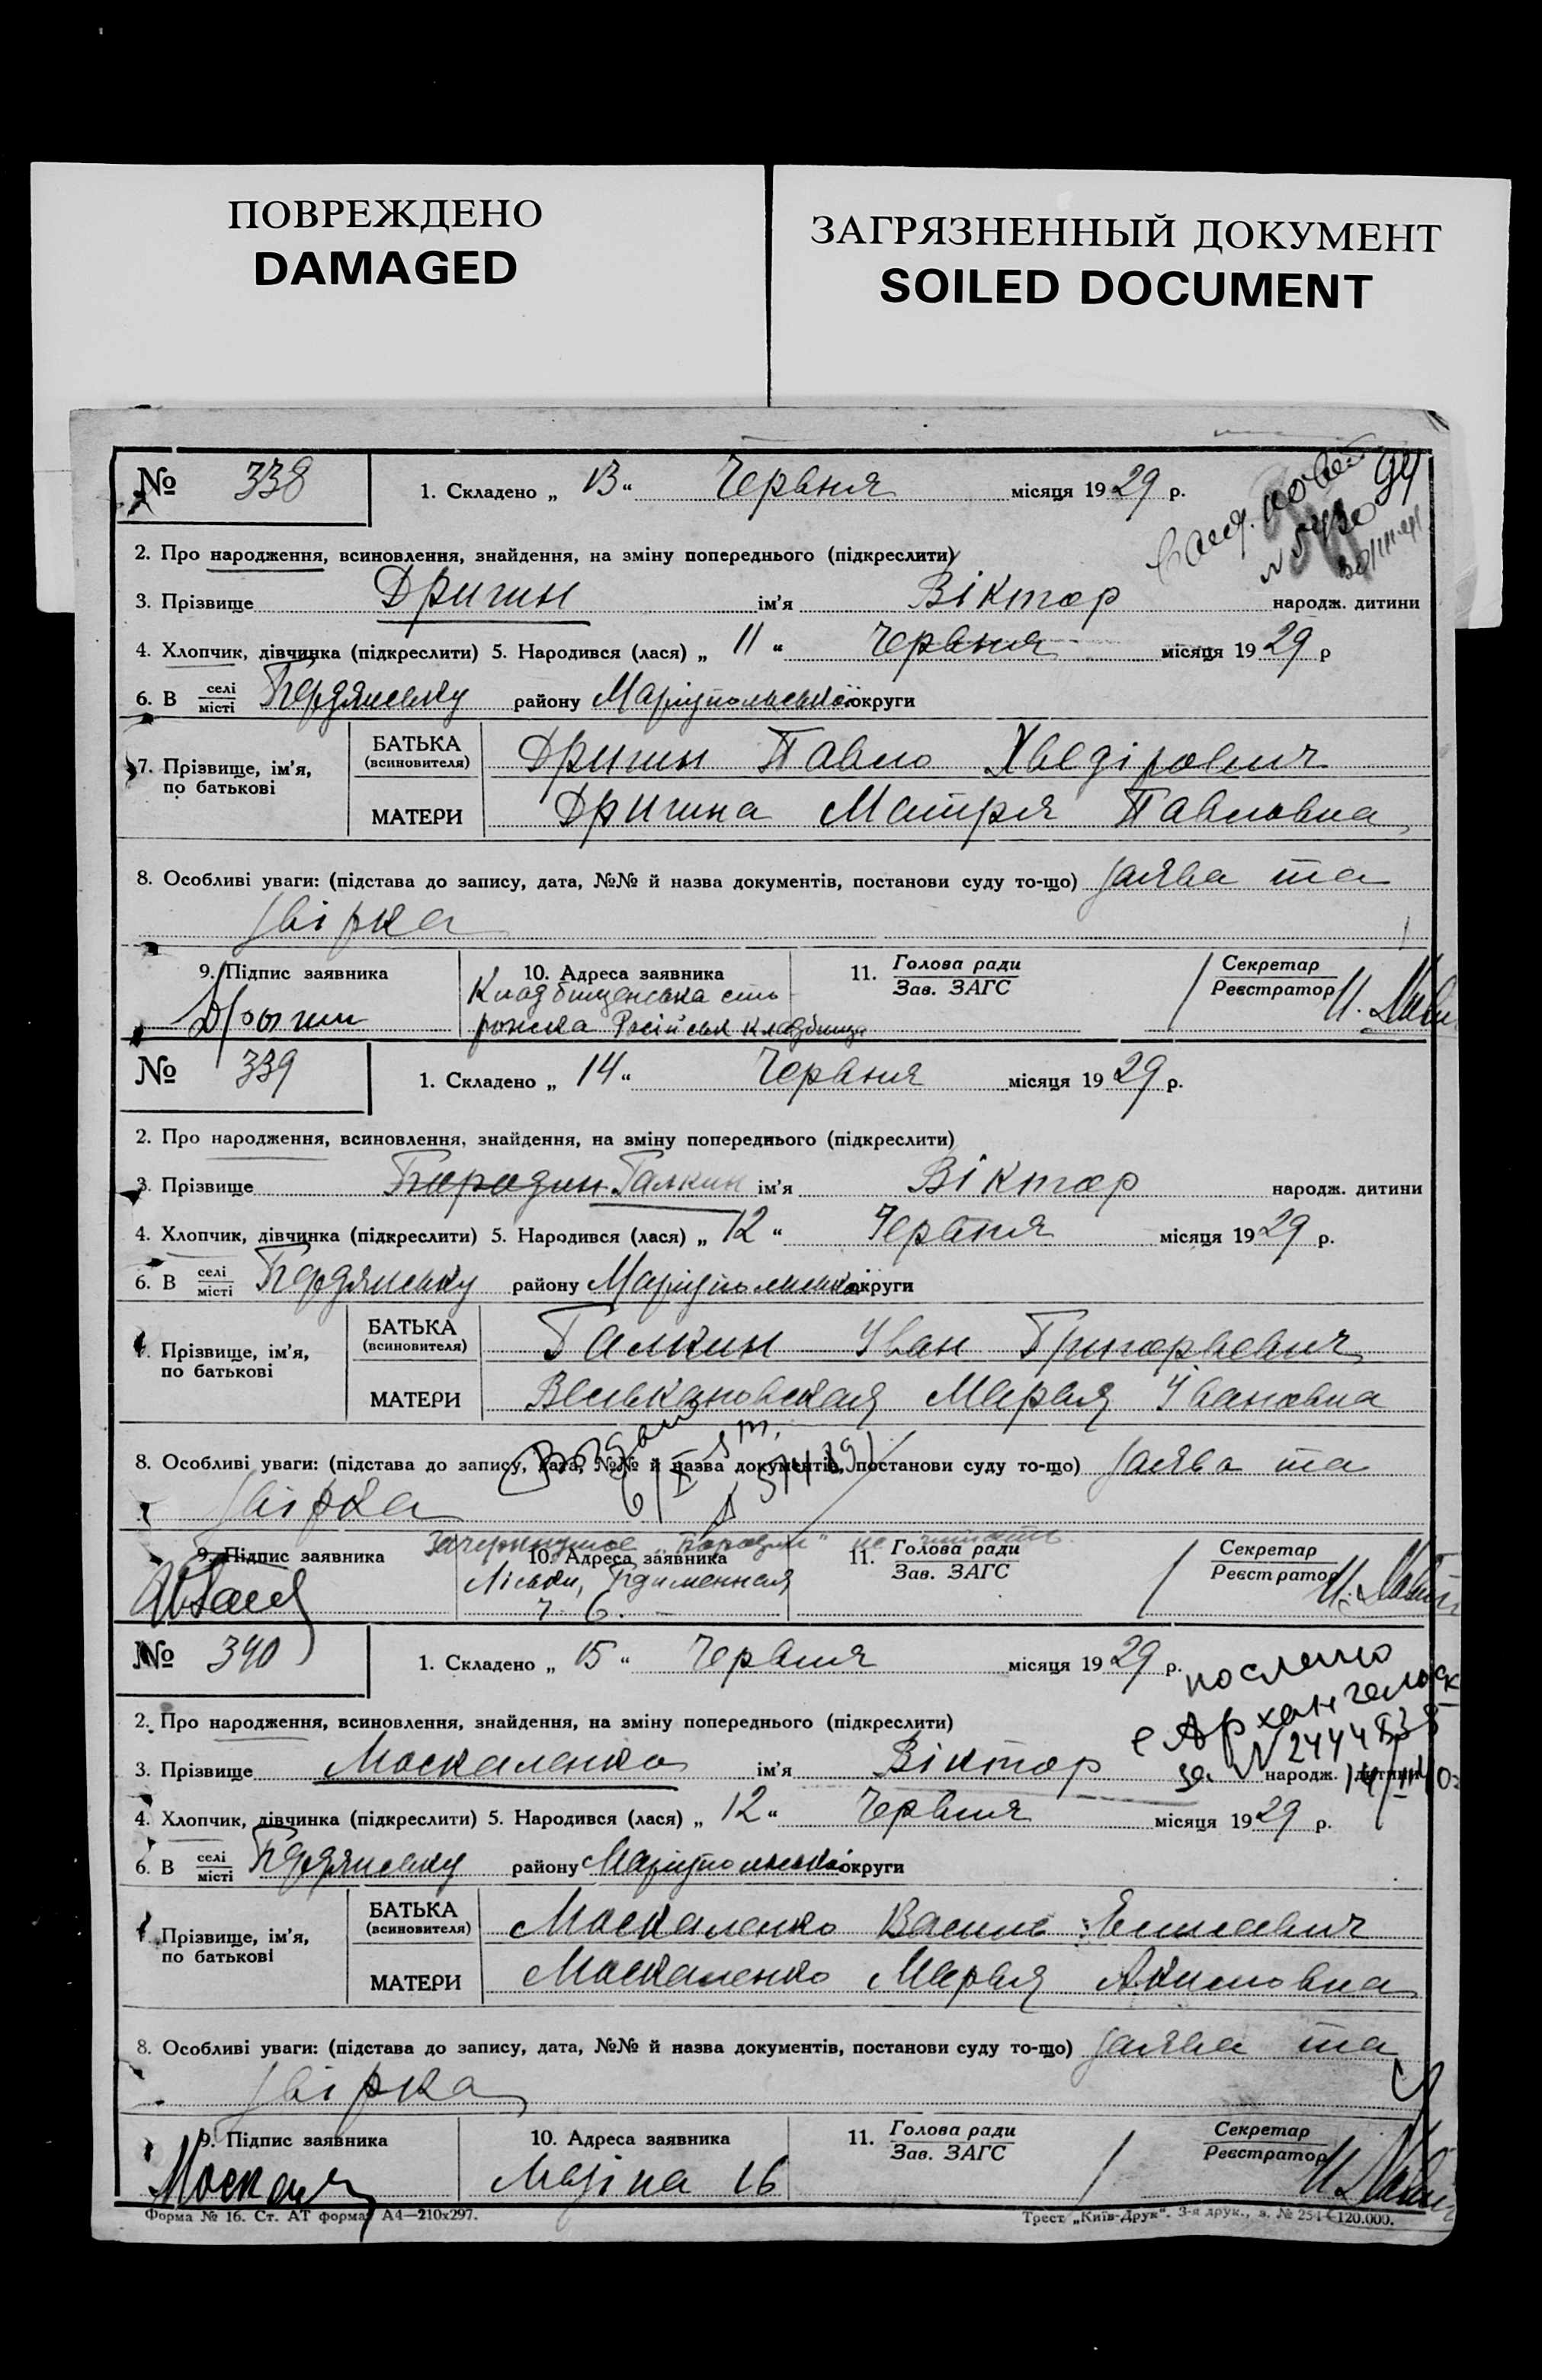 ПОВРЕЖДЕНО
DAMAGED
ЗАГРЯЗНЕННЫЙ ДОКУМЕНТ
SOILED DOCUMENT
94
№ 338
1. Складено „ 13 “ Червня місяця 1929 р.
2. Про народження, всиновлення, знайдення, на зміну попереднього (підкреслити)
3. Прізвище Дригин ім'я Віктор народж. дитини
4. Хлопчик, дівчинка (підкреслити) 5. Народився (лася) „ 11 “ Червня місяця 1929 р
6. В селі місті Бердянську району Маріупольської округи
7. Прізвище, ім'я, по батькові
БАТЬКА (всиновителя) Дригин Павло Хведірович
МАТЕРИ Дригина Мотря Павловна
8. Особливі уваги: (підстава до запису, дата, №№ й назва документів, постанови суду то-що) заява та
звірка
9. Підпис заявника
10. Адреса заявника
11. Голова ради Зав. ЗАГС
Секретар Реєстратор
Дрыгин
Кладбищенська сто
рожка Російськ кладбища
№ 339
1. Складено „ 14 “ Червня місяця 1929 р.
2. Про народження, всиновлення, знайдення, на зміну попереднього (підкреслити)
3. Прізвище Бородин Галкин ім'я Віктор народж. дитини
4. Хлопчик, дівчинка (підкреслити) 5. Народився (лася) „ 12 “ Червня місяця 1929 р.
6. В селі місті Бердянську району Маріупольської округи
Прізвище, ім'я, по батькові
БАТЬКА (всиновителя) Галкин Іван Григорьевич
МАТЕРИ Марья Івановна
8. Особливі уваги: (підстава до запису, дата, №№ й назва документів, постанови суду то-що) заява та
звірка
Зачеркнутое „Бородин“ не читать.
9. Підпис заявника
10. Адреса заявника
11. Голова ради Зав. ЗАГС
Секретар Реєстратор
Ліски,
№ 340
1. Складено „ 15 “ Червня місяця 1929 р.
послано
Архангельск
2. Про народження, всиновлення, знайдення, на зміну попереднього (підкреслити)
за №
3. Прізвище Москаленко ім'я Віктор народж. дитини
4. Хлопчик, дівчинка (підкреслити) 5. Народився (лася) „ 12 “ Червня місяця 1929 р.
6. В селі місті Бердянську району Маріупольської округи
Прізвище, ім'я, по батькові
БАТЬКА (всиновителя) Москаленко Василь
МАТЕРИ Москаленко Марья Акимовна
8. Особливі уваги: (підстава до запису, дата, №№ й назва документів, постанови суду то-що) заява та
звірка
9. Підпис заявника
10. Адреса заявника
11. Голова ради Зав. ЗАГС
Секретар Реєстратор
Мазіна 16
Форма № 16. Ст. АТ формат А4—210х297.
Трест „Київ-Друк“. 3-я друк., з. № 254 120.000.